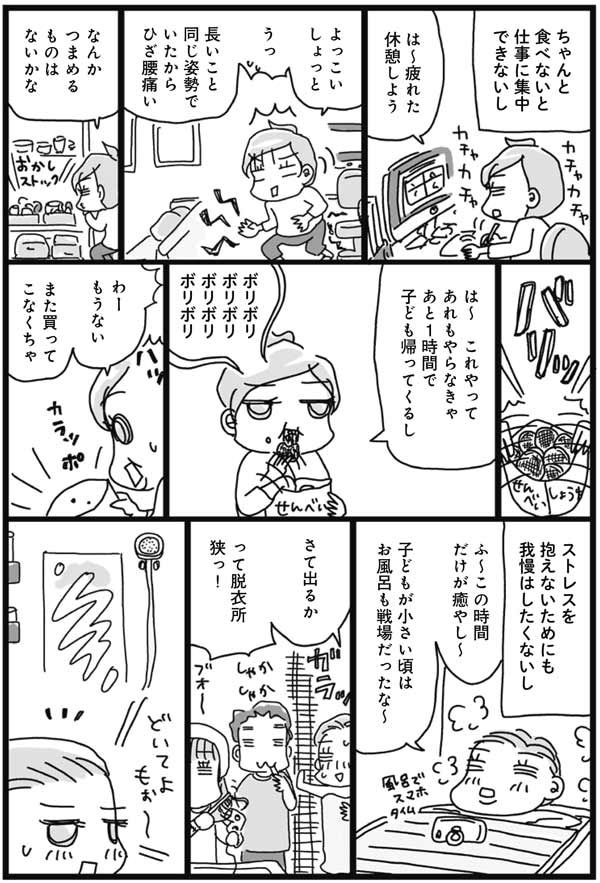 ちゃんと
食べないと
仕事に集中
できないし
は〜疲れた
休憩しよう
カチャ
カチャ
カチャ
カチャ
よっこい
しょっと
うっ
長いこと
同じ姿勢で
いたから
ひざ腰痛い
なんか
つまめる
ものは
ないかな
おかし
ストック
バリッ
せんべい
しょうゆ
は〜 これやって
あれもやらなきゃ
あと1時間で
子ども帰ってくるし
ボリボリ
ボリボリ
ボリボリ
せんべい
わー
もうない
また買って
こなくちゃ
ハッ
カラッポ
ストレスを
抱えないためにも
我慢はしたくないし
ふ〜この時間
だけが癒やし〜
子どもが小さい頃は
お風呂も戦場だったな〜
風呂で
スマホ
タイム
さて出るか
って脱衣所
狭っ！
しゃか
しゃか
ブォー
どいてよ
もぉ〜